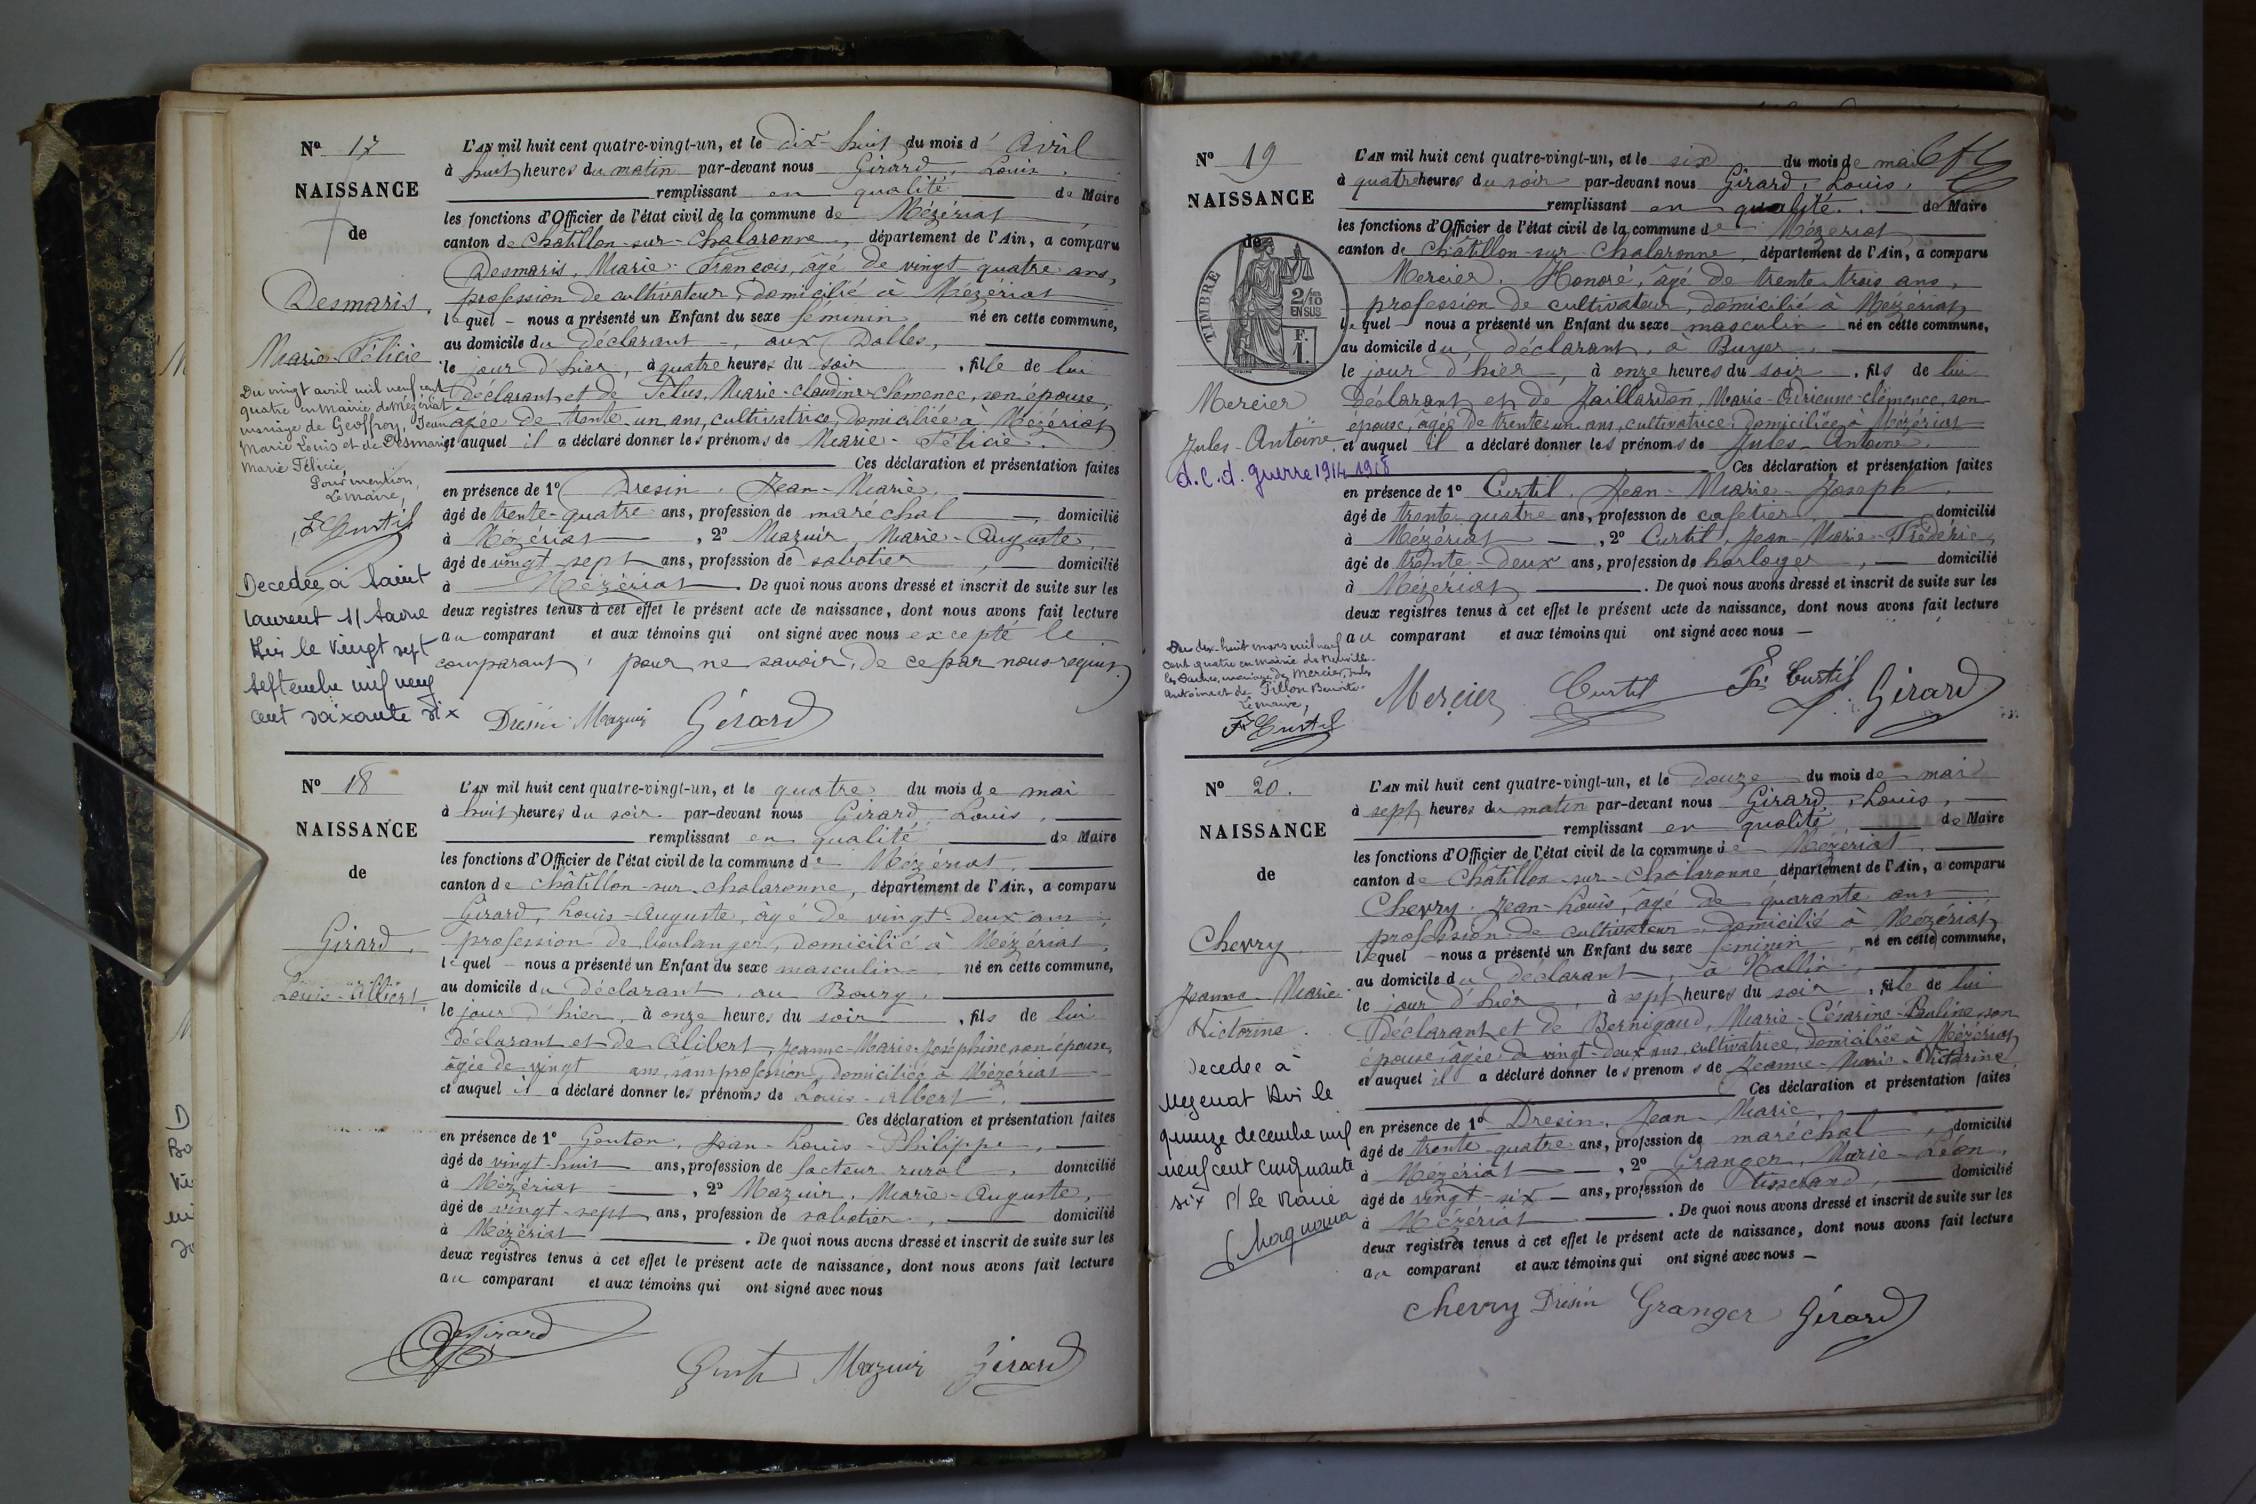 Nº 17
NAISSANCE
de
Desmaris,
Marie-Félicie
Du vingt avril mil neuf cent
quatre en Mairie de Mézériat
mariage de Geoffroy, Jean
Marie Louis et de Desmaris
Marie Félicie
Pour mention,
Le Maire,
F. Curtil
Decedée à Saint
Laurent s/ Saone
Ain le vingt sept
septembre mil neuf
cent soixante six
L'AN mil huit cent quatre-vingt-un, et le dix-huit du mois d'Avril
à huit heures du matin par-devant nous Girard, Louis,
remplissant en qualité de Maire
les fonctions d'Officier de l'état civil de la commune de Mézériat
canton de Châtillon-sur-Chalaronne, département de l'Ain, a comparu
Desmaris, Marie-François, âgé de vingt-quatre ans,
profession de cultivateur, domicilié à Mézériat
lequel nous a présenté un Enfant du sexe féminin né en cette commune,
au domicile du déclarant, aux Dalles,
le jour d'hier, à quatre heures du soir, fille de lui
déclarant et de Marie-Claudine-Clémence, son épouse,
âgée de trente-un ans, cultivatrice, domiciliée à Mézériat
et auquel il a déclaré donner les prénoms de Marie-Félicie.
Ces déclaration et présentation faites
en présence de 1º Dresin, Jean-Marie,
âgé de trente-quatre ans, profession de maréchal, domicilié
à Mézériat, 2º Mazuir, Marie-Auguste,
âgé de vingt-sept ans, profession de sabotier, domicilié
à Mézériat. De quoi nous avons dressé et inscrit de suite sur les
deux registres tenus à cet effet le présent acte de naissance, dont nous avons fait lecture
au comparant et aux témoins qui ont signé avec nous excepté le
comparant, pour ne savoir, de ce par nous requis.
Dresin Mazuir Girard
Nº 18
NAISSANCE
de
Girard,
Louis-Albert,
L'AN mil huit cent quatre-vingt-un, et le quatre du mois de mai
à huit heures du soir par-devant nous Girard, Louis,
remplissant en qualité de Maire
les fonctions d'Officier de l'état civil de la commune de Mézériat,
canton de Châtillon-sur-Chalaronne, département de l'Ain, a comparu
Girard, Louis-Auguste, âgé de vingt-deux ans,
profession de boulanger, domicilié à Mézériat,
lequel nous a présenté un Enfant du sexe masculin né en cette commune,
au domicile du déclarant, au Bourg,
le jour d'hier, à onze heures du soir, fils de lui
déclarant et de Alibert, Jeanne-Marie-Joséphine, son épouse,
âgée de vingt ans, sans profession, domiciliée à Mézériat
et auquel il a déclaré donner les prénoms de Louis-Albert.
Ces déclaration et présentation faites
en présence de 1º Gouton, Jean-Louis-Philippe,
âgé de vingt-huit ans, profession de facteur rural, domicilié
à Mézériat, 2º Mazuir, Marie-Auguste,
âgé de vingt-sept ans, profession de sabotier, domicilié
à Mézériat. De quoi nous avons dressé et inscrit de suite sur les
deux registres tenus à cet effet le présent acte de naissance, dont nous avons fait lecture
au comparant et aux témoins qui ont signé avec nous
Girard Mazuir Girard
Nº 19
NAISSANCE
de
TIMBRE
2/10
EN SUS
F.
1.
Mercier
Jules-Antoine.
d. c. d. guerre 1914 1918
Du dix-huit mars mil neuf
cent quatre en Mairie de Neuville-
les-Dames, mariage de Mercier, Jules
Antoine et de Tillon Benoite.
Le Maire,
F. Curtil
L'AN mil huit cent quatre-vingt-un, et le six du mois de mai
à quatre heures du soir par-devant nous Girard, Louis,
remplissant en qualité de Maire
les fonctions d'Officier de l'état civil de la commune de Mézériat
canton de Châtillon-sur-Chalaronne, département de l'Ain, a comparu
Mercier, Honoré, âgé de trente-trois ans,
profession de cultivateur, domicilié à Mézériat
lequel nous a présenté un Enfant du sexe masculin né en cette commune,
au domicile du déclarant, à Buyer,
le jour d'hier, à onze heures du soir, fils de lui
déclarant et de Jaillardon, Marie-Adrienne-Clémence, son
épouse, âgée de trente-un ans, cultivatrice, domiciliée à Mézériat
et auquel il a déclaré donner les prénoms de Jules-Antoine.
Ces déclaration et présentation faites
en présence de 1º Curtil, Jean-Marie-Joseph,
âgé de trente-quatre ans, profession de cafetier, domicilié
à Mézériat, 2º Curtil, Jean-Marie-Frédéric,
âgé de trente-deux ans, profession de horloger, domicilié
à Mézériat. De quoi nous avons dressé et inscrit de suite sur les
deux registres tenus à cet effet le présent acte de naissance, dont nous avons fait lecture
au comparant et aux témoins qui ont signé avec nous
Mercier Curtil F. Curtil Girard
Nº 20.
NAISSANCE
de
Chevry
Jeanne-Marie
Victorine.
Decedée à
Mezeriat Ain le
quinze decembre mil
neuf cent cinquante
six P/ le Maire
L'AN mil huit cent quatre-vingt-un, et le douze du mois de mai
à sept heures du matin par-devant nous Girard, Louis,
remplissant en qualité de Maire
les fonctions d'Officier de l'état civil de la commune de Mézériat,
canton de Châtillon-sur-Chalaronne, département de l'Ain, a comparu
Chevry, Jean-Louis, âgé de quarante ans
profession de cultivateur, domicilié à Mézériat
lequel nous a présenté un Enfant du sexe féminin, né en cette commune,
au domicile du déclarant, à
le jour d'hier, à sept heures du soir, fille de lui
déclarant et de Bernigaud, Marie-Césarine-Pauline, son
épouse, âgée de vingt-deux ans, cultivatrice, domiciliée à Mézériat
et auquel il a déclaré donner les prénoms de Jeanne-Marie-Victorine
Ces déclaration et présentation faites
en présence de 1º Dresin, Jean-Marie,
âgé de trente-quatre ans, profession de maréchal, domicilié
à Mézériat, 2º Granger, Marie-Léon,
âgé de vingt-six ans, profession de tisserand, domicilié
à Mézériat. De quoi nous avons dressé et inscrit de suite sur les
deux registres tenus à cet effet le présent acte de naissance, dont nous avons fait lecture
au comparant et aux témoins qui ont signé avec nous
Chevry Dresin Granger Girard